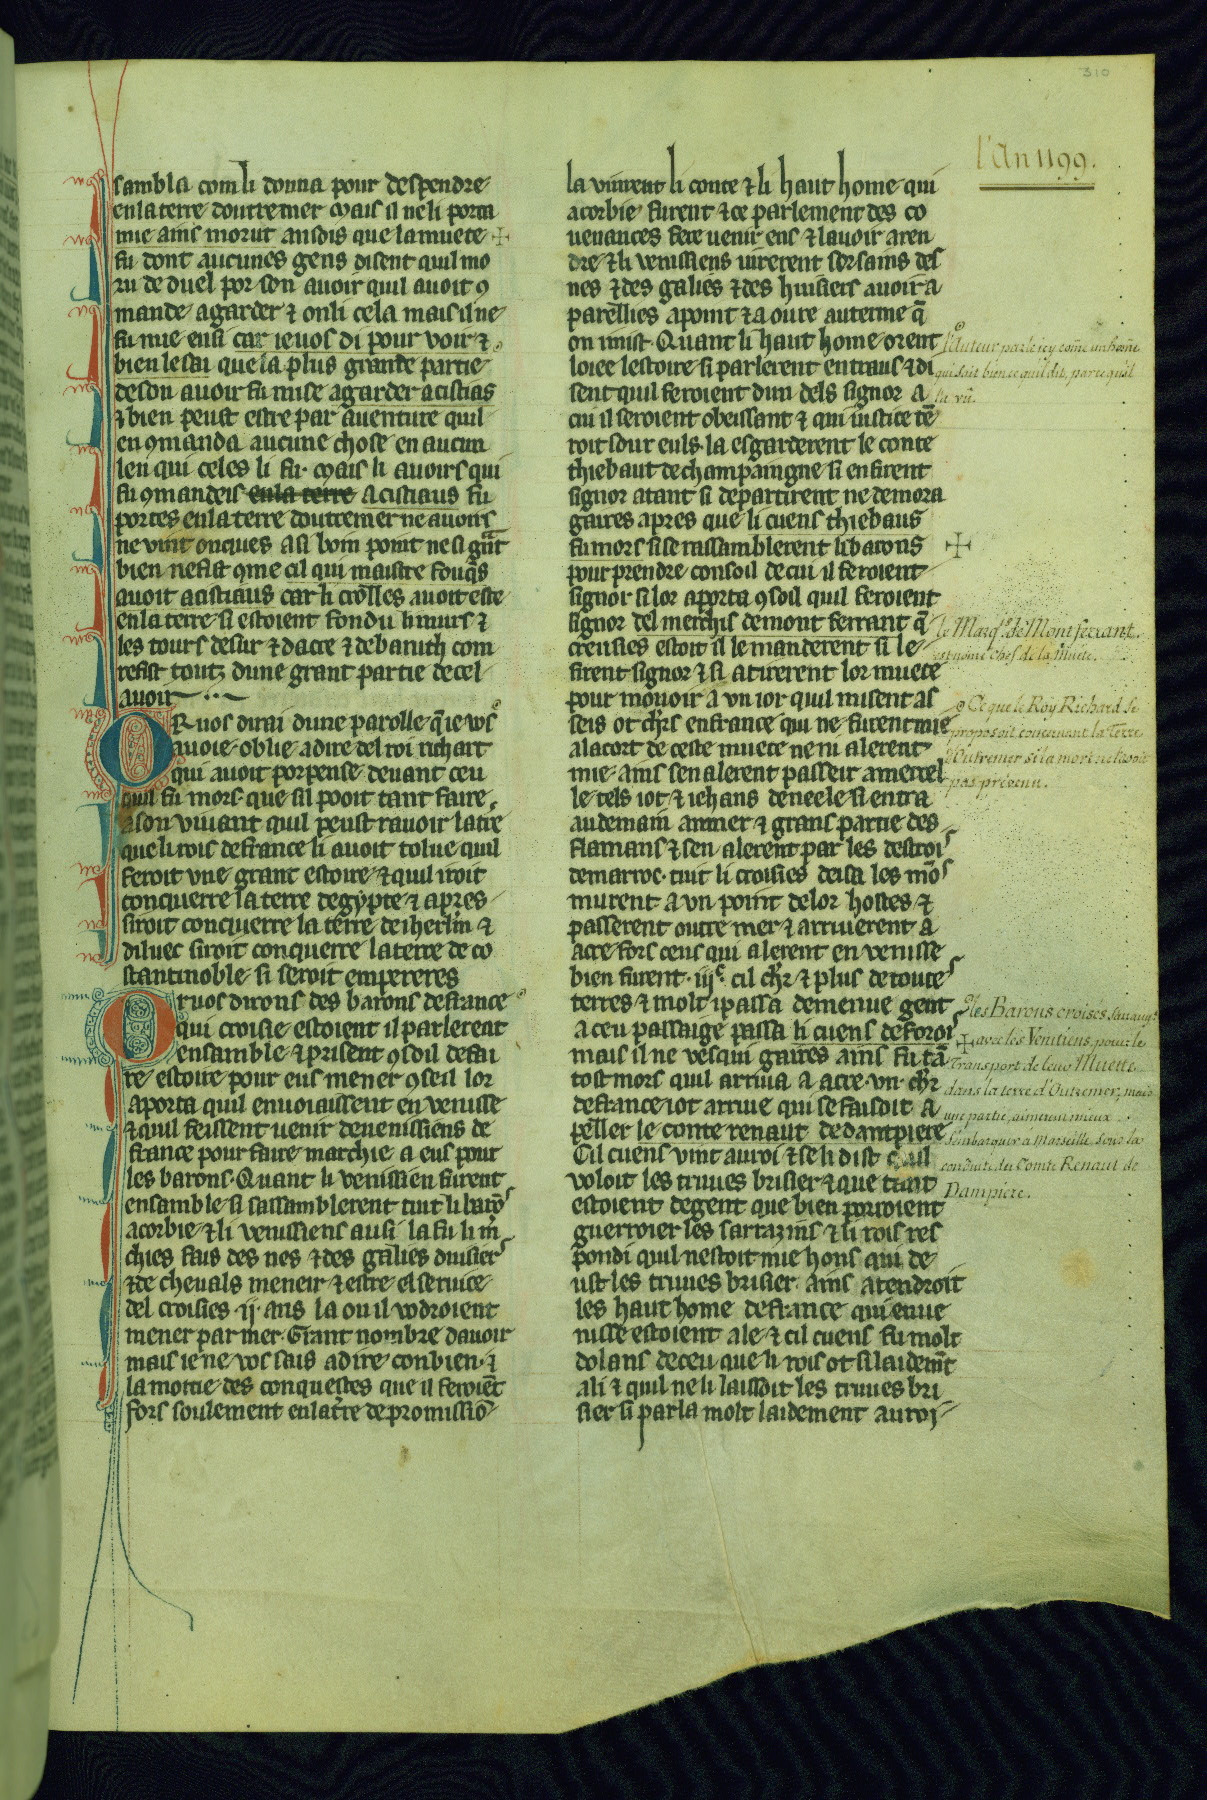 310
l'An 1199.
sambla com li donna pour despendre
en la terre doutremer mais il ne li porta
mie ains morut ansois que la muete
fu dont aucunes gens disent quil mo
ru de duel por son avoir quil avoit 9
mande a garder ⁊ on li cela mais il ne
fu mie ensi car ie vos di pour voir ⁊
bien le sai que la plus grande partie
de son avoir fu mise a garder a cistias
⁊ bien peust estre par aventure quil
en 9manda aucune chose en aucun
leu qui celes li fu. mais li avoirs qui
fu 9mandeis en la terre a cistiaus fu
portes en la terre doutremer ne avoirs
ne vint onques a si bom point ne si gnt
bien ne fist 9me cil qui maistre fouqs
avoit a cistiaus car li crolles avoit este
en la terre si estoient fondu li murs ⁊
les tours de sur ⁊ dacre ⁊ de baruth com
refist toutz dune grant partie de cel
avoir
Or vos dirai dune parolle q ie vos
avoie oblie a dire del roi richart
qui avoit porpense devant ceu
quil fu mors que sil pooit tant faire
a son vivant quil peust ravoir la tre
que li rois de france li avoit tolue quil
feroit une grant estoire ⁊ quil iroit
conquerre la terre degypte ⁊ apres
siroit conquerre la terre de iherlm ⁊
diluec siroit conquerre la terre de co
stantinoble si seroit empereres
Or vos dirons des barons de france
qui croisie estoient il parlerent
ensamble ⁊ prisent 9soil de fai
re estoire pour eus mener 9seil lor
aporta quil envoiaissent en venisse
⁊ quil feissent venir de venissiens de
france pour faire marchie a eus pour
les barons. Quant li venissien furent
ensamble si sassamblerent tuit li baro
a corbie ⁊ li venissiens ausi la fu li m
chies fais des nes ⁊ des galies duisier
⁊ de chevals meneir ⁊ estre el service
del croisies .ij. ans la ou il vodroient
mener par mer. Grant nombre davoir
mais ie ne vos sais a dire conbien. ⁊
la moitie des conquestes que il feroiet
fors soulement en la tre de promissio
la vinrent li conte ⁊ li haut home qui
a corbie furent ⁊ ce parlement des co
venances fere venir ens ⁊ lavoir a ren
dre ⁊ li venissiens iurerent sor sains des
nes ⁊ des galies ⁊ des huisiers avoir a
pareillies a point ⁊ a oure au terme q
on i mist. Quant li haut home orent
loiee lestoire si parlerent entraus ⁊ di
sent quil feroient dun dels signor a
cui il seroient obeissant ⁊ qui iustice te
roit sour euls. la esgarderent le conte
thiebaut de champaingne si en firent
signor atant si departirent ne demora
gaires apres que li cuens thiebaus
fu mors si se rassamblerent li barons
pour prendre consoil de cui il feroient
signor si lor aporta 9soil quil feroient
signor del merchis de mont ferrant q
creusies estoit il le manderent si le
firent signor ⁊ si atirerent lor muete
pour movoir a un ior quil misent as
seis ot chrs en france qui ne furent mie
a la cort de ceste muete ne ni alerent
mie ains sen alerent passeir a mercel
le tels iot ⁊ ichans deneele si entra
au demain an mer ⁊ grans partie des
flamans ⁊ sen alerent par les destroi
de marroc. tuit li croisies deisa les mos
murent a un point de lor hostes ⁊
passerent outre mer ⁊ arriverent a
acre fors ceus qui alerent en venisse
bien furent .iijc. cil chr ⁊ plus de toute
terres ⁊ molt i passa de menue gent
a ceu passaige passa li cuens de foroi
mais il ne vesqui gaires ains fu ta
tost mors quil arriva a acre .un. chr
de france iot arrive qui se faisoit a
peller le conte renaut de dampiere
Cil cuens vint au roi ⁊ se li dist quil
voloit les truues brisier ⁊ que tant
estoient de gent que bien porroient
guerroier les sarrazins ⁊ li rois res
pondi quil nestoit mie hons qui de
ust les truues brisier. ains atendroit
les haut home de france qui en ve
nisse estoient ale ⁊ cil cuens fu molt
dolans de ceu que li rois ot si laidemt
a li ⁊ quil ne li laissoit les truues bri
sier si parla molt laidement au roi
l'Auteur parle icy come un home
qui sait bien ce quil dit, parce quil
la vû.
le Marqs. de Montferrant
est nomé chef de la Muete.
Ce que le Roy Richard se
proposoit concernant la Terre
d'Outremer si la mort ne l'avoit
pas prévenu.
les Barons croisés
avec les Venitiens, pour le
Transport de leur Muette
dans la terre d'Outremer, mais
une partie, aimerent mieux
s'embarquer a Marseille sous la
conduite du Comte Renaut de
Dampiere.